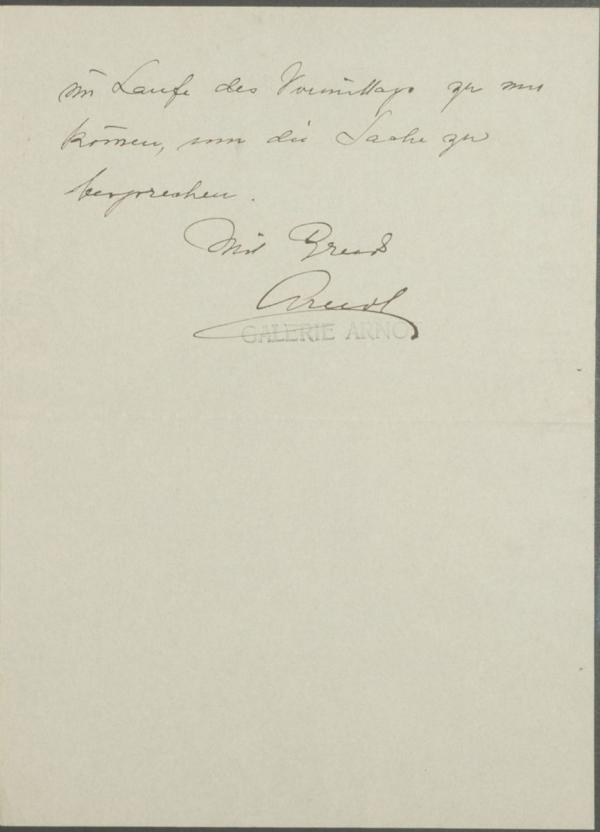 im Laufe des Vormittags zu mir
kommen, um die Sache zu
besprechen.
Mit Gruß
GALERIE ARNO